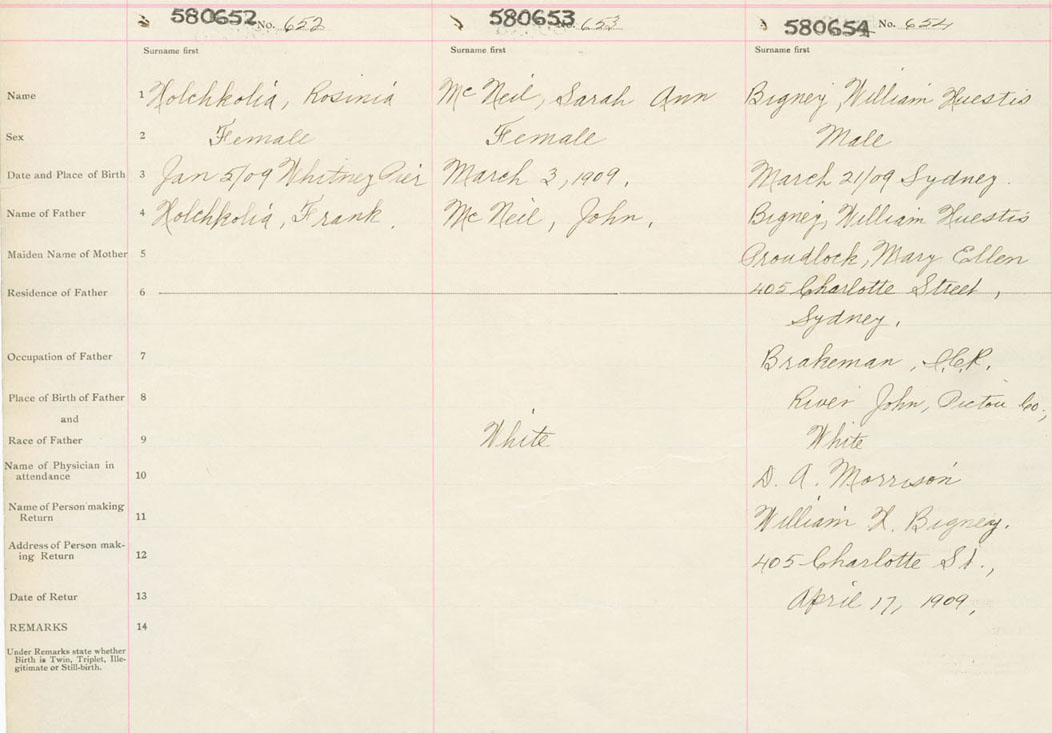 580652 No. 652 580653 No. 653 580654 No. 654
Surname first Surname first Surname first
Name 1 Holchkolia, Rosinia McNeil, Sarah Ann Bigney, William Huestis
Sex 2 Female Female Male
Date and Place of Birth 3 Jan 5/09 Whitney Pier March 3, 1909. March 21/09 Sydney.
Name of Father 4 Holchkolia, Frank. McNeil, John. Bigney, William Huestis
Maiden Name of Mother 5 Proudlock, Mary Ellen
Residence of Father 6 405 Charlotte Street,
Sydney.
Occupation of Father 7 Brakeman, I.C.R.
Place of Birth of Father 8 River John, Pictou Co.,
and
Race of Father 9 White White
Name of Physician in
attendance 10 D. A. Morrison
Name of Person making
Return 11 William H. Bigney.
Address of Person mak-
ing Return 12 405 Charlotte St.,
Date of Retur 13 April 17, 1909,
REMARKS 14
Under Remarks state whether
Birth is Twin, Triplet, Ille-
gitimate or Still-birth.